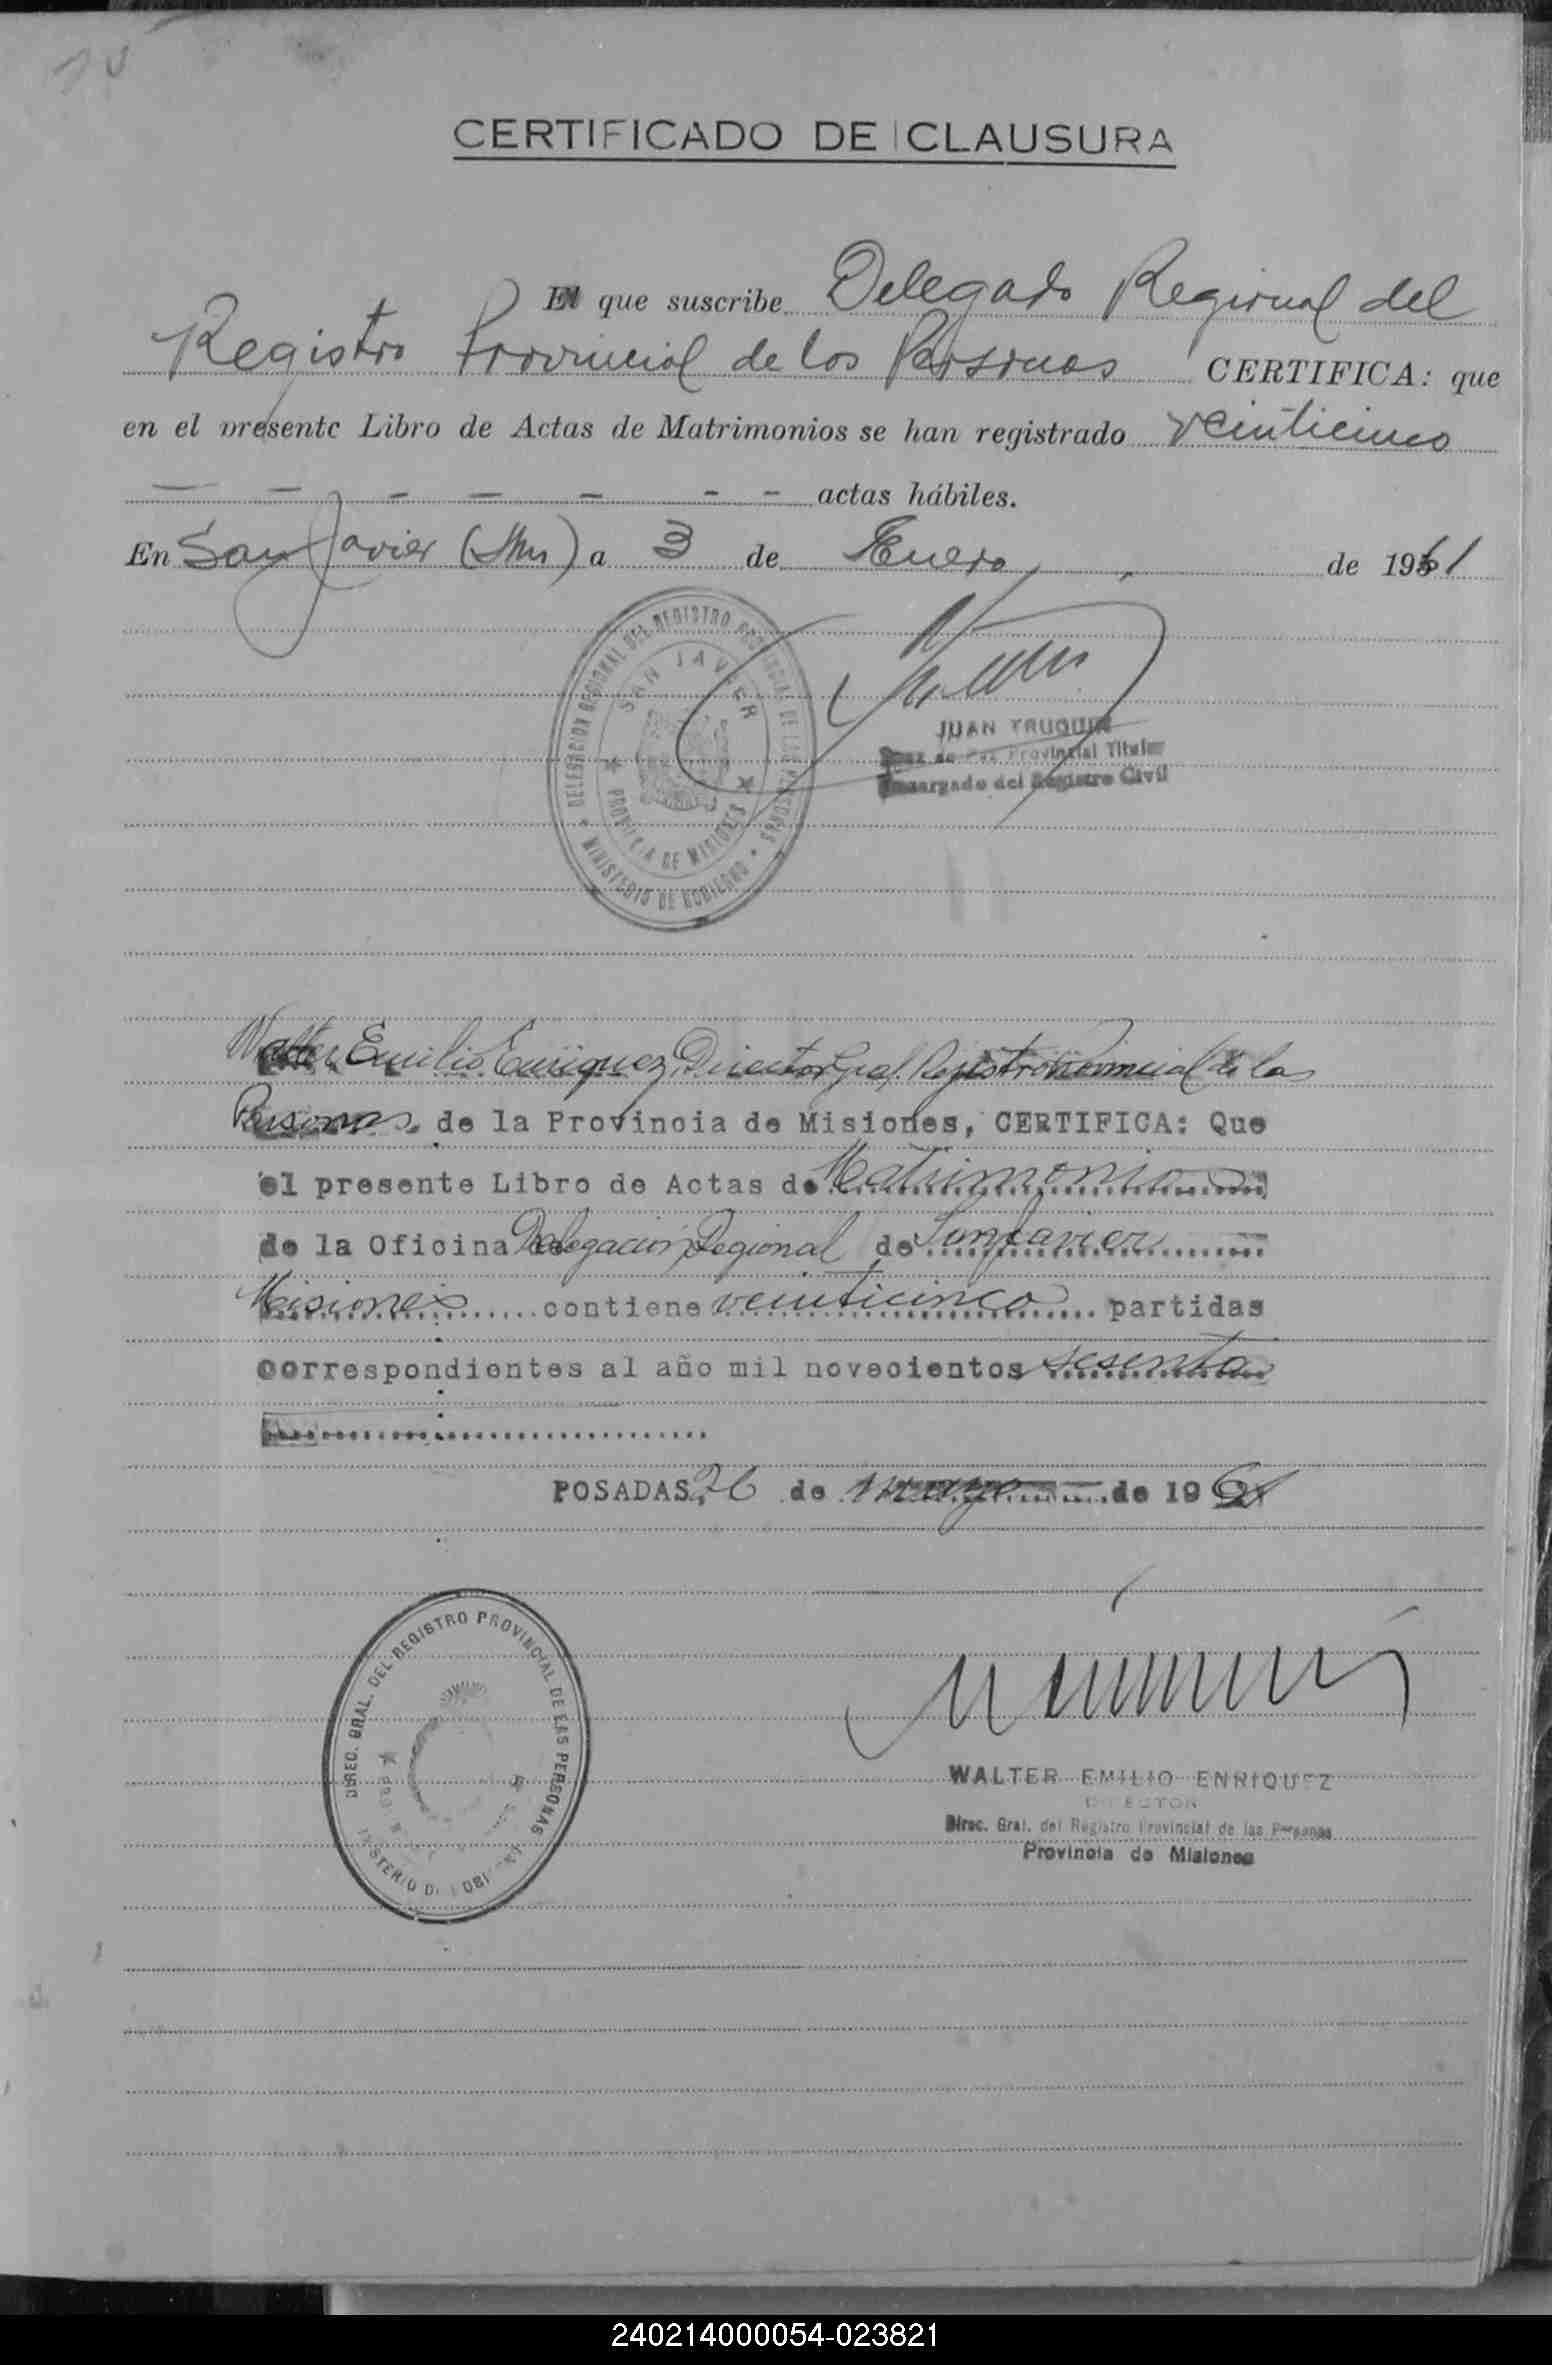 CERTIFICADO DE CLAUSURA
El que suscribe Delegado Regional del
Registro Provincial de las Personas CERTIFICA: que
en el presente Libro de Actas de Matrimonios se han registrado veinticinco
— — — — — — — actas hábiles.
En San Javier (Mns) a 3 de Enero de 1961
DELEGACION REGIONAL DEL REGISTRO PROVINCIAL DE LAS PERSONAS
SAN JAVIER
PROVINCIA DE MISIONES
MINISTERIO DE GOBIERNO
JUAN TRUQUIN
Juez de Paz Provincial Titular
Encargado del Registro Civil
Walter Emilio Enriquez, Director Gral. Registro Provincial de las
Personas, de la Provincia de Misiones, CERTIFICA: Que
el presente Libro de Actas de Matrimonio
de la Oficina Delegación Regional de San Javier
Misiones contiene veinticinco partidas
correspondientes al año mil novecientos sesenta
POSADAS, 26 de mayo de 196
DIREC. GRAL. DEL REGISTRO PROVINCIAL DE LAS PERSONAS
WALTER EMILIO ENRIQUEZ
DIRECTOR
Direc. Gral. del Registro Provincial de las Personas
Provincia de Misiones
240214000054-023821